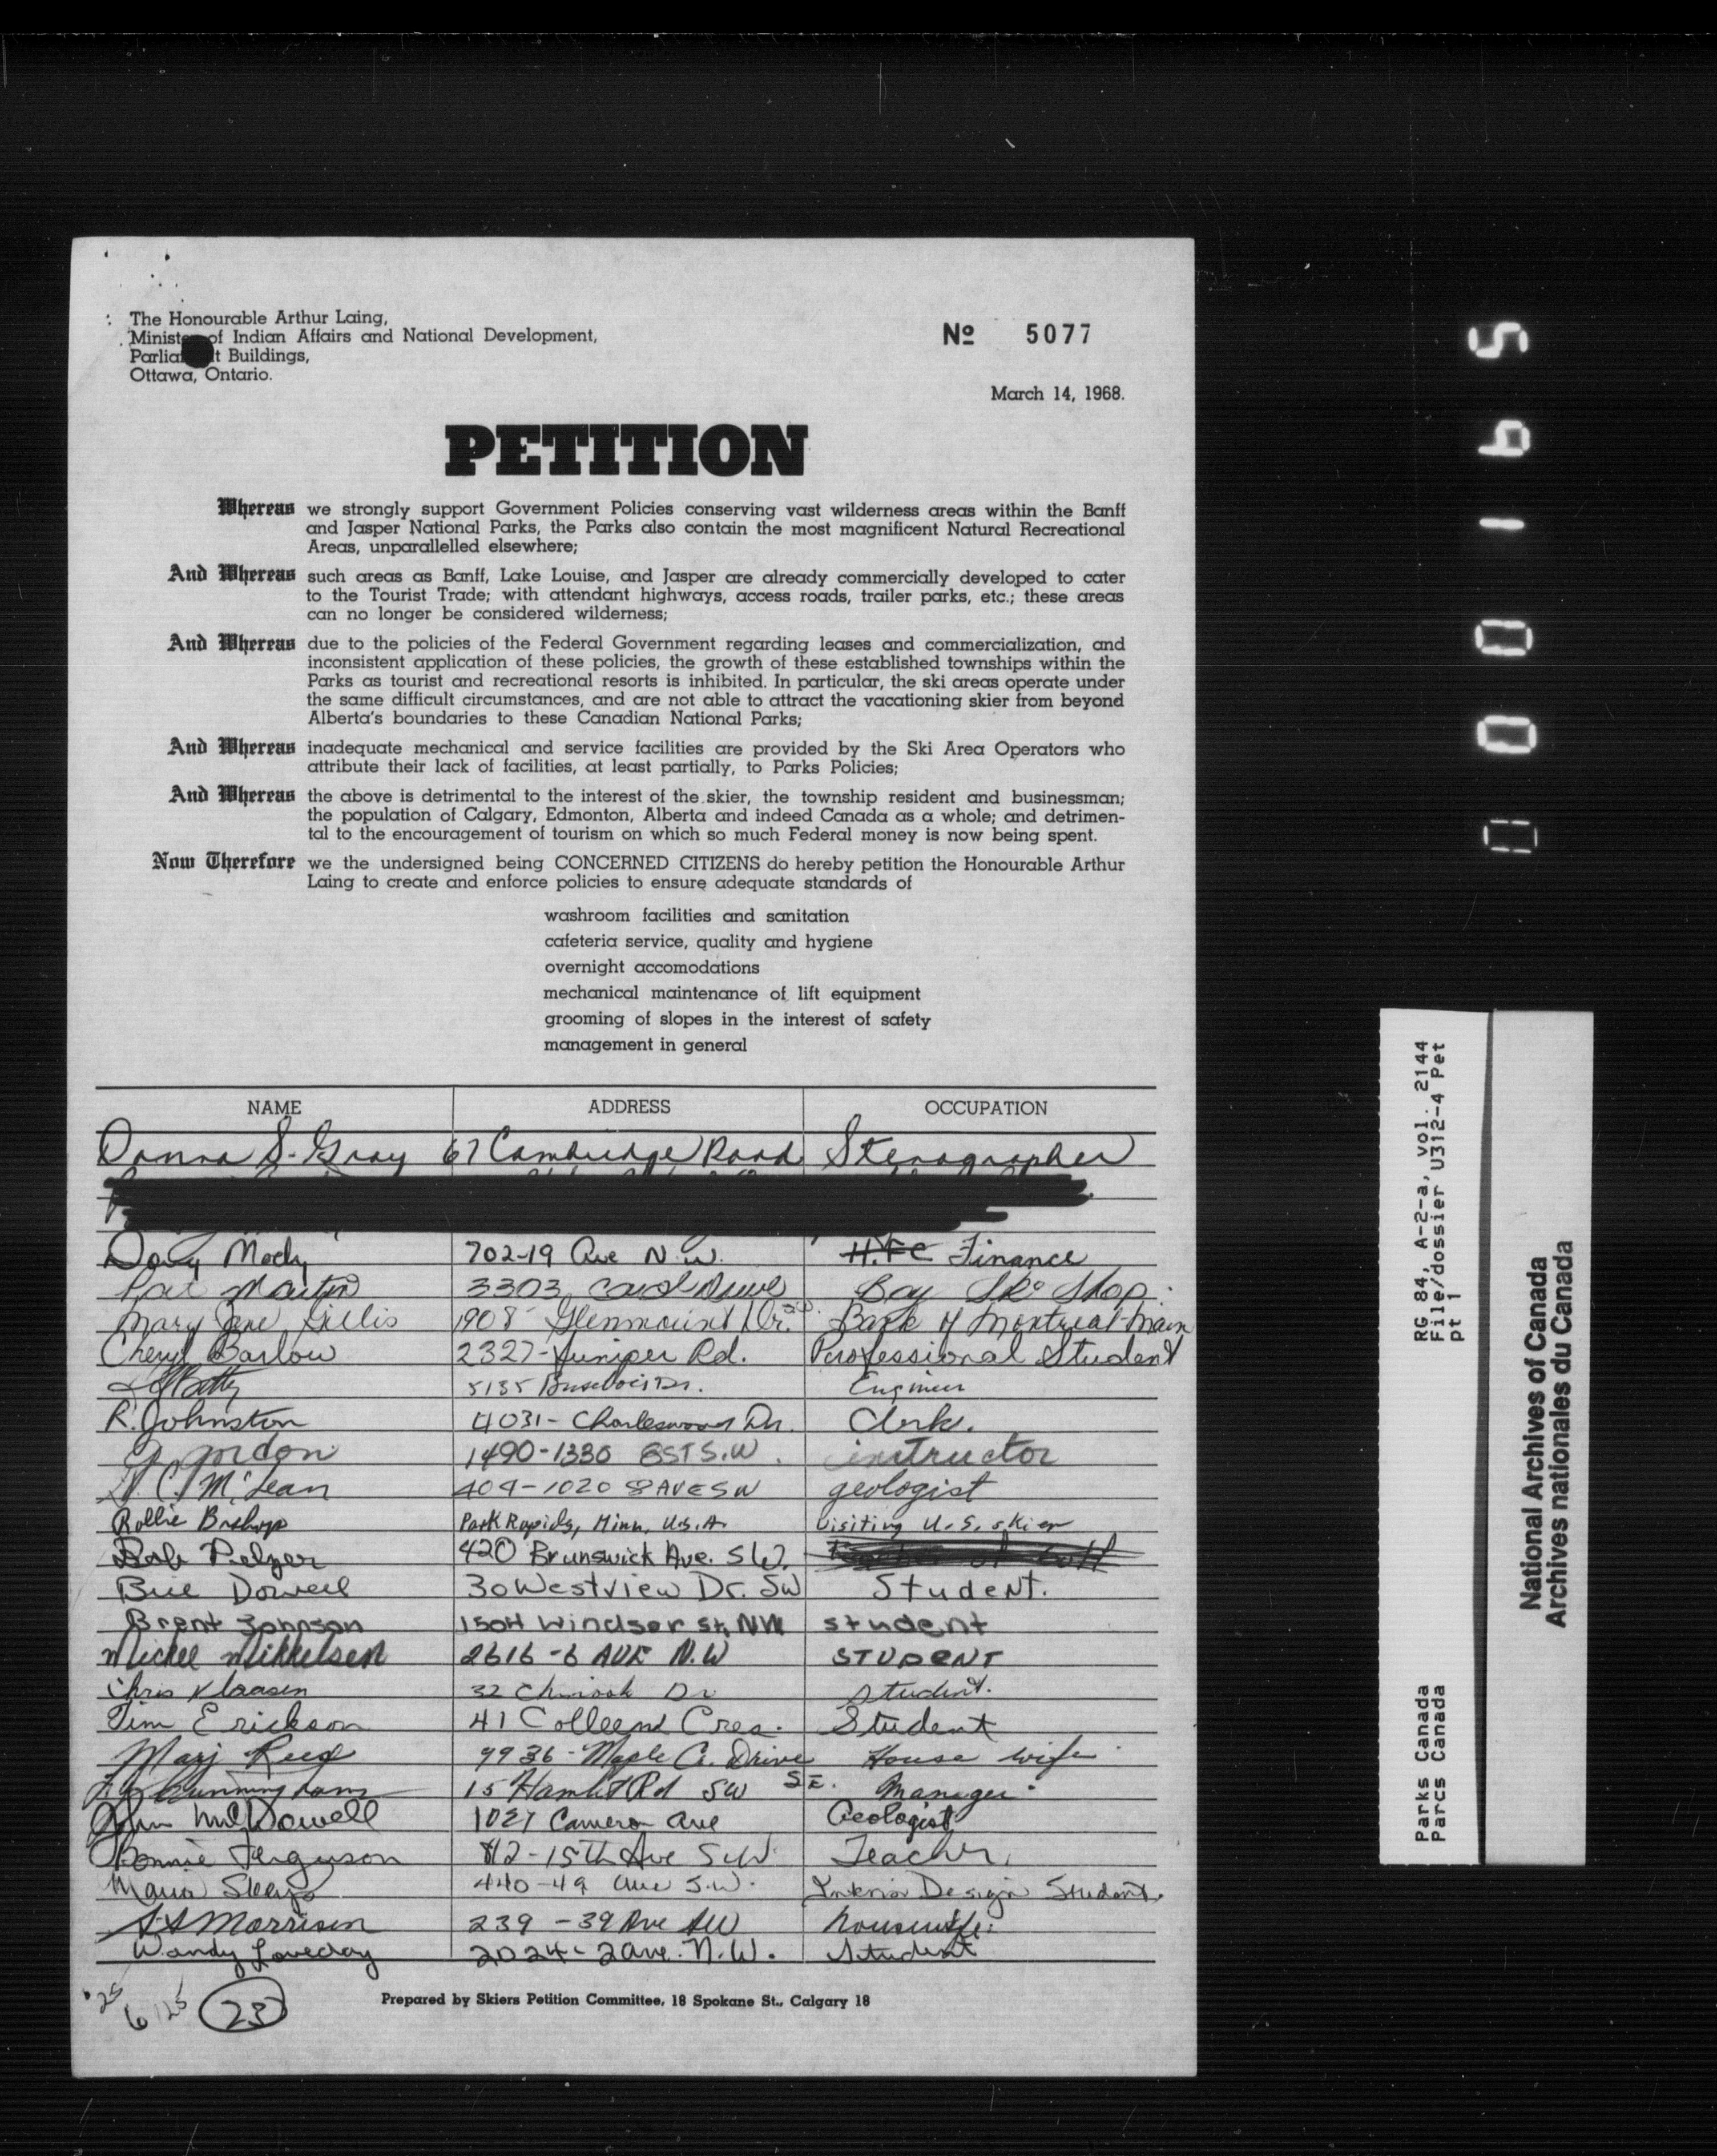 The Honourable Arthur Laing,
Minister of Indian Affairs and National Development,
Parliament Buildings,
Ottawa, Ontario.
Nº 5077
March 14, 1968.
PETITION
Whereas we strongly support Government Policies conserving vast wilderness areas within the Banff
and Jasper National Parks, the Parks also contain the most magnificent Natural Recreational
Areas, unparallelled elsewhere;
And Whereas such areas as Banff, Lake Louise, and Jasper are already commercially developed to cater
to the Tourist Trade; with attendant highways, access roads, trailer parks, etc.; these areas
can no longer be considered wilderness;
And Whereas due to the policies of the Federal Government regarding leases and commercialization, and
inconsistent application of these policies, the growth of these established townships within the
Parks as tourist and recreational resorts is inhibited. In particular, the ski areas operate under
the same difficult circumstances, and are not able to attract the vacationing skier from beyond
Alberta's boundaries to these Canadian National Parks;
And Whereas inadequate mechanical and service facilities are provided by the Ski Area Operators who
attribute their lack of facilities, at least partially, to Parks Policies;
And Whereas the above is detrimental to the interest of the skier, the township resident and businessman;
the population of Calgary, Edmonton, Alberta and indeed Canada as a whole; and detrimen-
tal to the encouragement of tourism on which so much Federal money is now being spent.
Now Therefore we the undersigned being CONCERNED CITIZENS do hereby petition the Honourable Arthur
Laing to create and enforce policies to ensure adequate standards of
washroom facilities and sanitation
cafeteria service, quality and hygiene
overnight accomodations
mechanical maintenance of lift equipment
grooming of slopes in the interest of safety
management in general
NAME ADDRESS OCCUPATION
Donna S. Gray 67 Cambridge Road Stenographer
Mody 702-19 Ave N.W. H.F.C Finance
Pat Martin 3303 Drive Bay Ski Shop
Mary Jane Gillis 1908 Glenmount Dr. Bank of Montreal Main
Cheryl Barlow 2327-Juniper Rd. Professional Student
Betty 5135 Dr. Engineer
R. Johnston 4031- Charleswood Dr. Clerk.
Gordon 1490-1330 8ST S.W. instructor
D. C. McLean 409-1020 8 AVE SW geologist
Rollie Bishop Park Rapids, Minn, U.S.A. Visiting U.S. skier
Bob Pelzer 420 Brunswick Ave. S.W.
Bill Dowell 30 Westview Dr. SW Student.
Brent Johnson 1504 Windsor St. NW student
Mickel Mikkelsen 2616-6 AVE N.W STUDENT
Chris Klaasen 32 Chinook Dr Student.
Tim Erickson 41 Colleen Cres. Student
Marj Reed 9936-Maple Drive S.E. House wife
Cunningham 15 Hamlet Rd SW Manager
John McDowell 1027 Cameron Ave Geologist
Bonnie Ferguson 812-15th Ave S.W. Teacher
Maria 440-49 Ave S.W. Interior Design Student.
Morrison 239 - 39 Ave SW housewife
Wandy Loveday 2024-2 Ave. N.W. Student
25
6125
23
Prepared by Skiers Petition Committee, 18 Spokane St., Calgary 18
000165
RG 84, A-2-a, vol. 2144
File/dossier U312-4 Pet
pt 1
Parks Canada
Parcs Canada
National Archives of Canada
Archives nationales du Canada